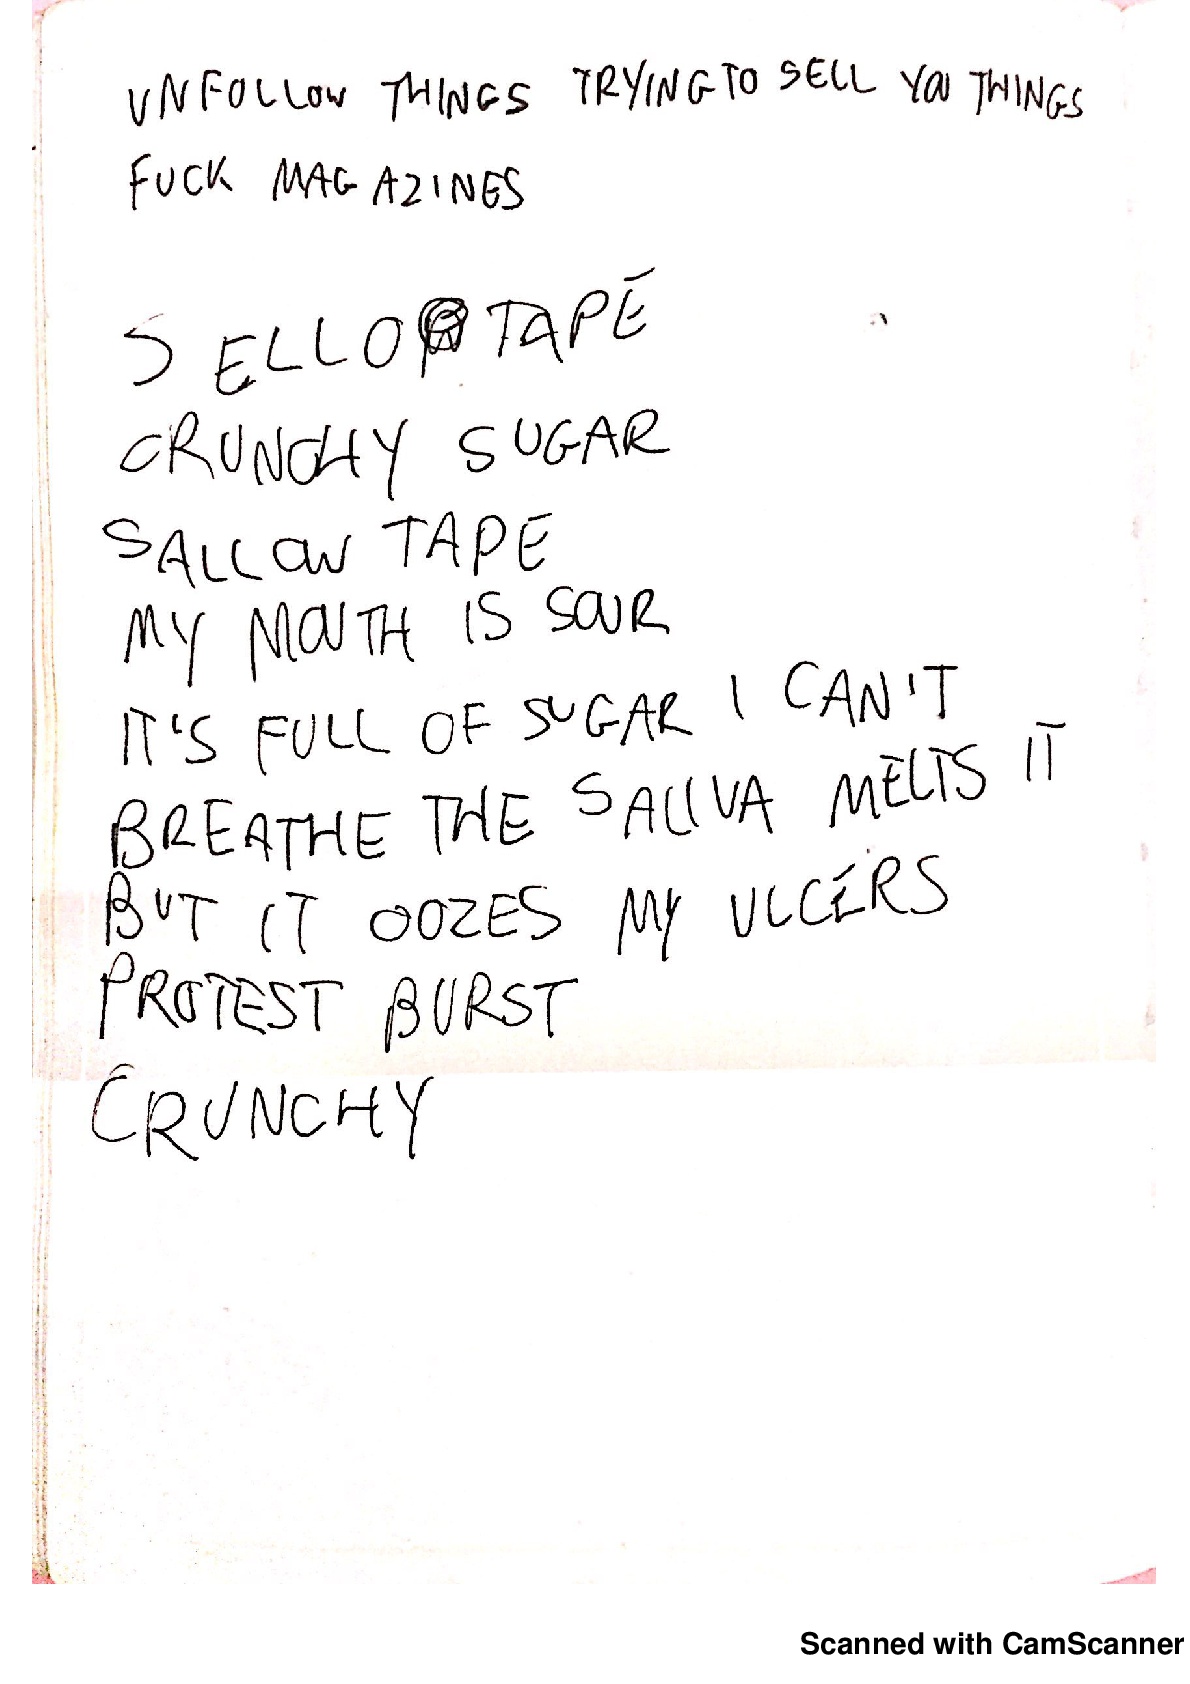 UNFOLLOW THINGS TRYING TO SELL YOU THINGS
FUCK MAGAZINES
SELLO TAPE
CRUNCHY SUGAR
SALLOW TAPE
MY MOUTH IS SOUR
IT'S FULL OF SUGAR I CAN'T
BREATHE THE SALIVA MELTS IT
BUT IT OOZES MY ULCERS
PROTEST BURST
CRUNCHY
Scanned with CamScanner